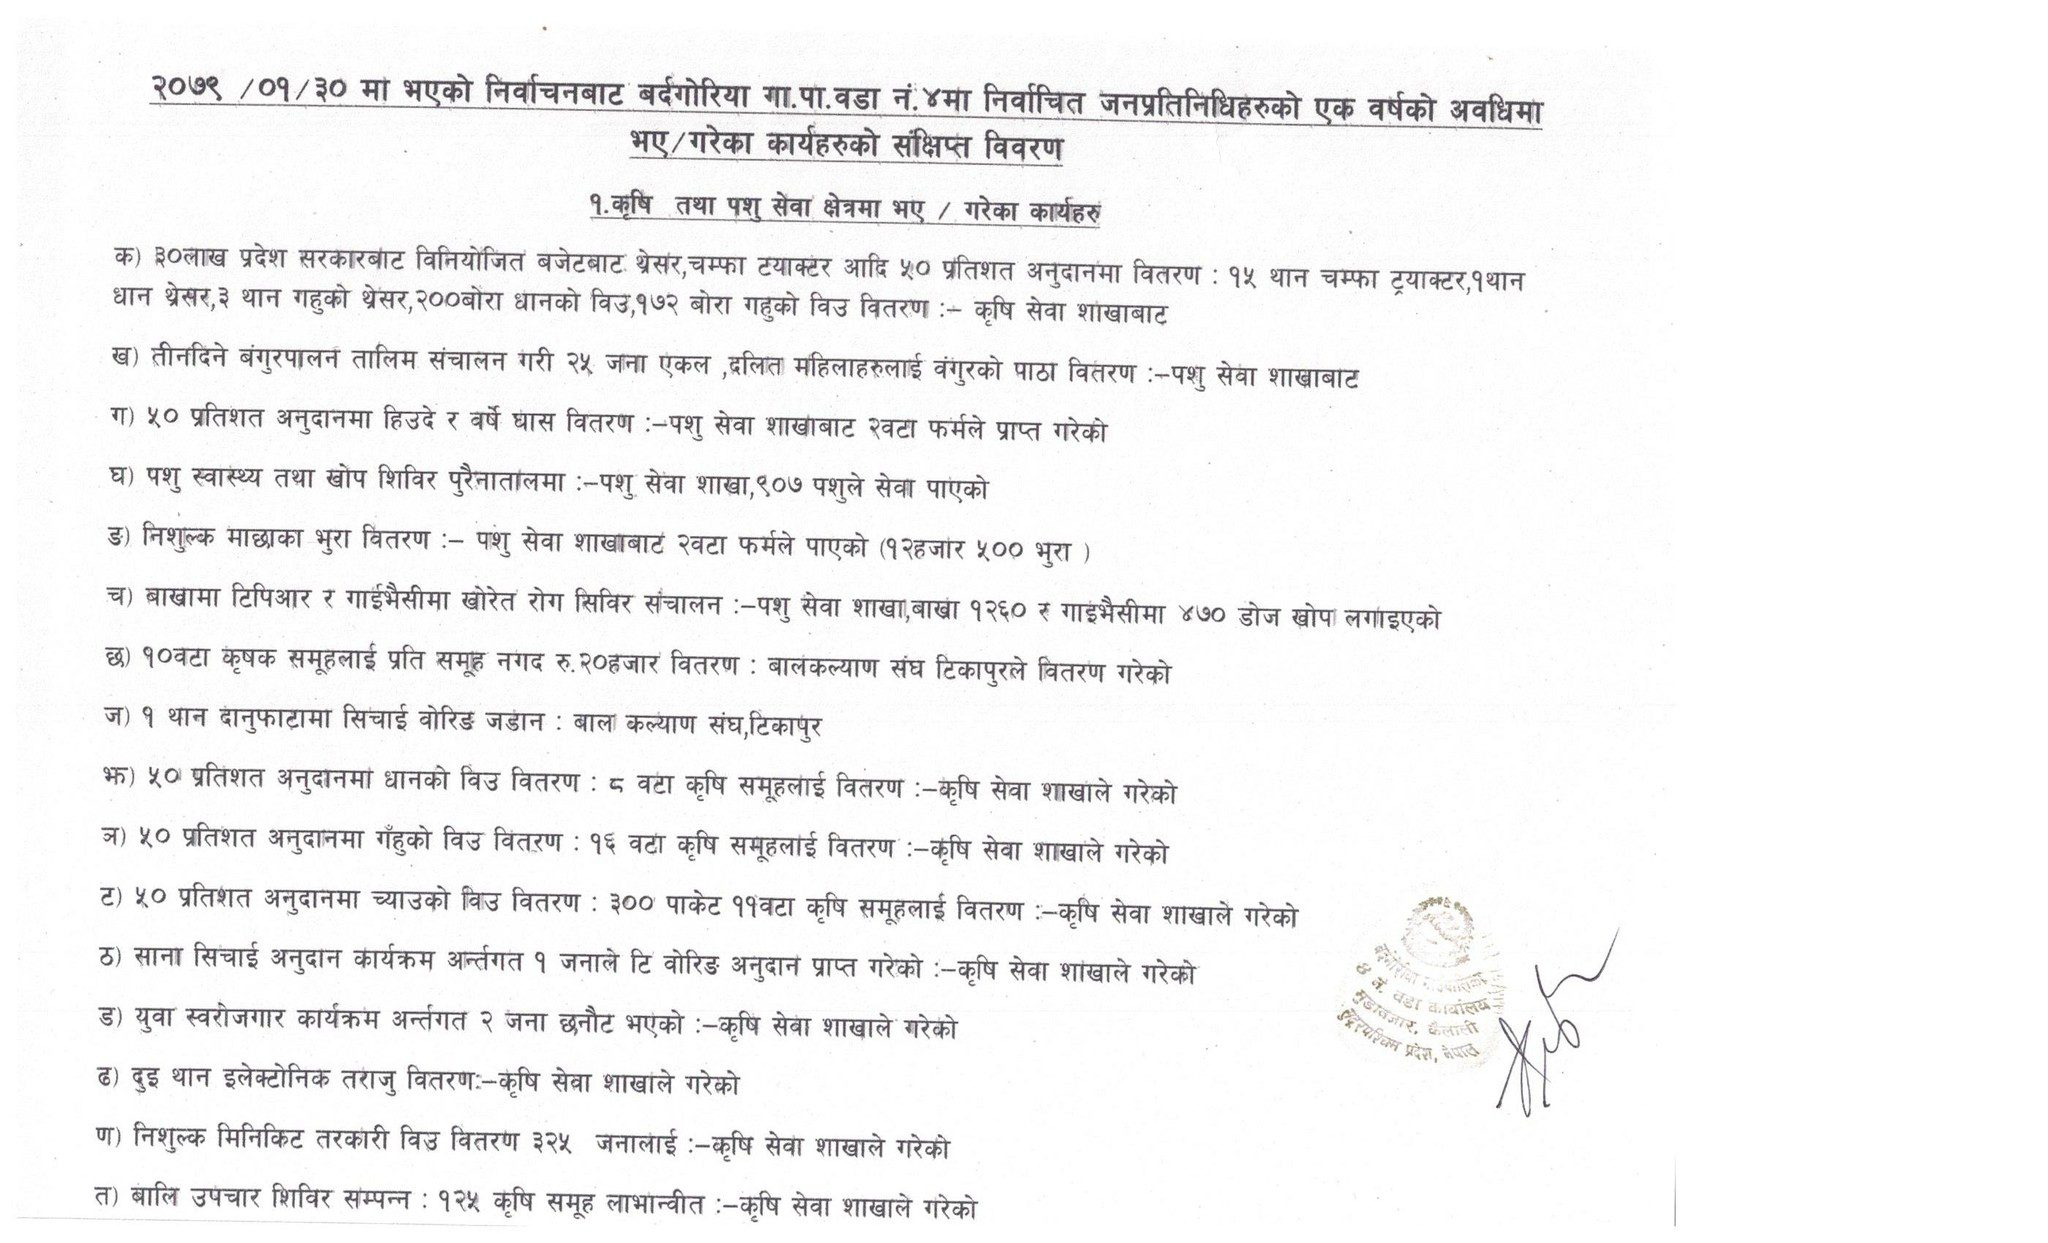 २०७९ /०१/३० मा भएको निर्वाचनबाट बर्दगोरिया गा.पा.वडा नं.४मा निर्वाचित जनप्रतिनिधिहरुको एक वर्षको अवधिमा
भए/गरेका कार्यहरुको संक्षिप्त विवरण
१.कृषि तथा पशु सेवा क्षेत्रमा भए / गरेका कार्यहरु
क) ३०लाख प्रदेश सरकारबाट विनियोजित बजेटबाट थ्रेसर,चम्फा टयाक्टर आदि ५० प्रतिशत अनुदानमा वितरण : १५ थान चम्फा ट्रयाक्टर,१थान
धान थ्रेसर,३ थान गहुको थ्रेसर,२००बोरा धानको विउ,१७२ बोरा गहुको विउ वितरण :– कृषि सेवा शाखाबाट
ख) तीनदिने बंगुरपालन तालिम संचालन गरी २५ जना एकल ,दलित महिलाहरुलाई वंगुरको पाठा वितरण :–पशु सेवा शाखाबाट
ग) ५० प्रतिशत अनुदानमा हिउदे र वर्षे घास वितरण :–पशु सेवा शाखाबाट २वटा फर्मले प्राप्त गरेको
घ) पशु स्वास्थ्य तथा खोप शिविर पुरैनातालमा :–पशु सेवा शाखा,९०७ पशुले सेवा पाएको
ङ) निशुल्क माछाका भुरा वितरण :– पशु सेवा शाखाबाट २वटा फर्मले पाएको (१२हजार ५०० भुरा )
च) बाखामा टिपिआर र गाईभैसीमा खोरेत रोग सिविर संचालन :–पशु सेवा शाखा,बाखा १२६० र गाइभैसीमा ४७० डोज खोप लगाइएको
छ) १०वटा कृषक समूहलाई प्रति समूह नगद रु.२०हजार वितरण : बालकल्याण संघ टिकापुरले वितरण गरेको
ज) १ थान दानुफाटामा सिचाई वोरिङ जडान : बाल कल्याण संघ,टिकापुर
झ) ५० प्रतिशत अनुदानमा धानको विउ वितरण : ८ वटा कृषि समूहलाई वितरण :–कृषि सेवा शाखाले गरेको
ञ) ५० प्रतिशत अनुदानमा गँहुको विउ वितरण : १६ वटा कृषि समूहलाई वितरण :–कृषि सेवा शाखाले गरेको
ट) ५० प्रतिशत अनुदानमा च्याउको विउ वितरण : ३०० पाकेट ११वटा कृषि समूहलाई वितरण :–कृषि सेवा शाखाले गरेको
ठ) साना सिचाई अनुदान कार्यक्रम अर्न्तगत १ जनाले टि वोरिङ अनुदान प्राप्त गरेको :–कृषि सेवा शाखाले गरेको
ड) युवा स्वरोजगार कार्यक्रम अर्न्तगत २ जना छनौट भएको :–कृषि सेवा शाखाले गरेको
ढ) दुइ थान इलेक्टोनिक तराजु वितरण:–कृषि सेवा शाखाले गरेको
ण) निशुल्क मिनिकिट तरकारी विउ वितरण ३२५ जनालाई :–कृषि सेवा शाखाले गरेको
त) बालि उपचार शिविर सम्पन्न : १२५ कृषि समूह लाभान्वीत :–कृषि सेवा शाखाले गरेको
४ नं. वडा कार्यालय
कैलाली
सुदूरपश्चिम प्रदेश, नेपाल